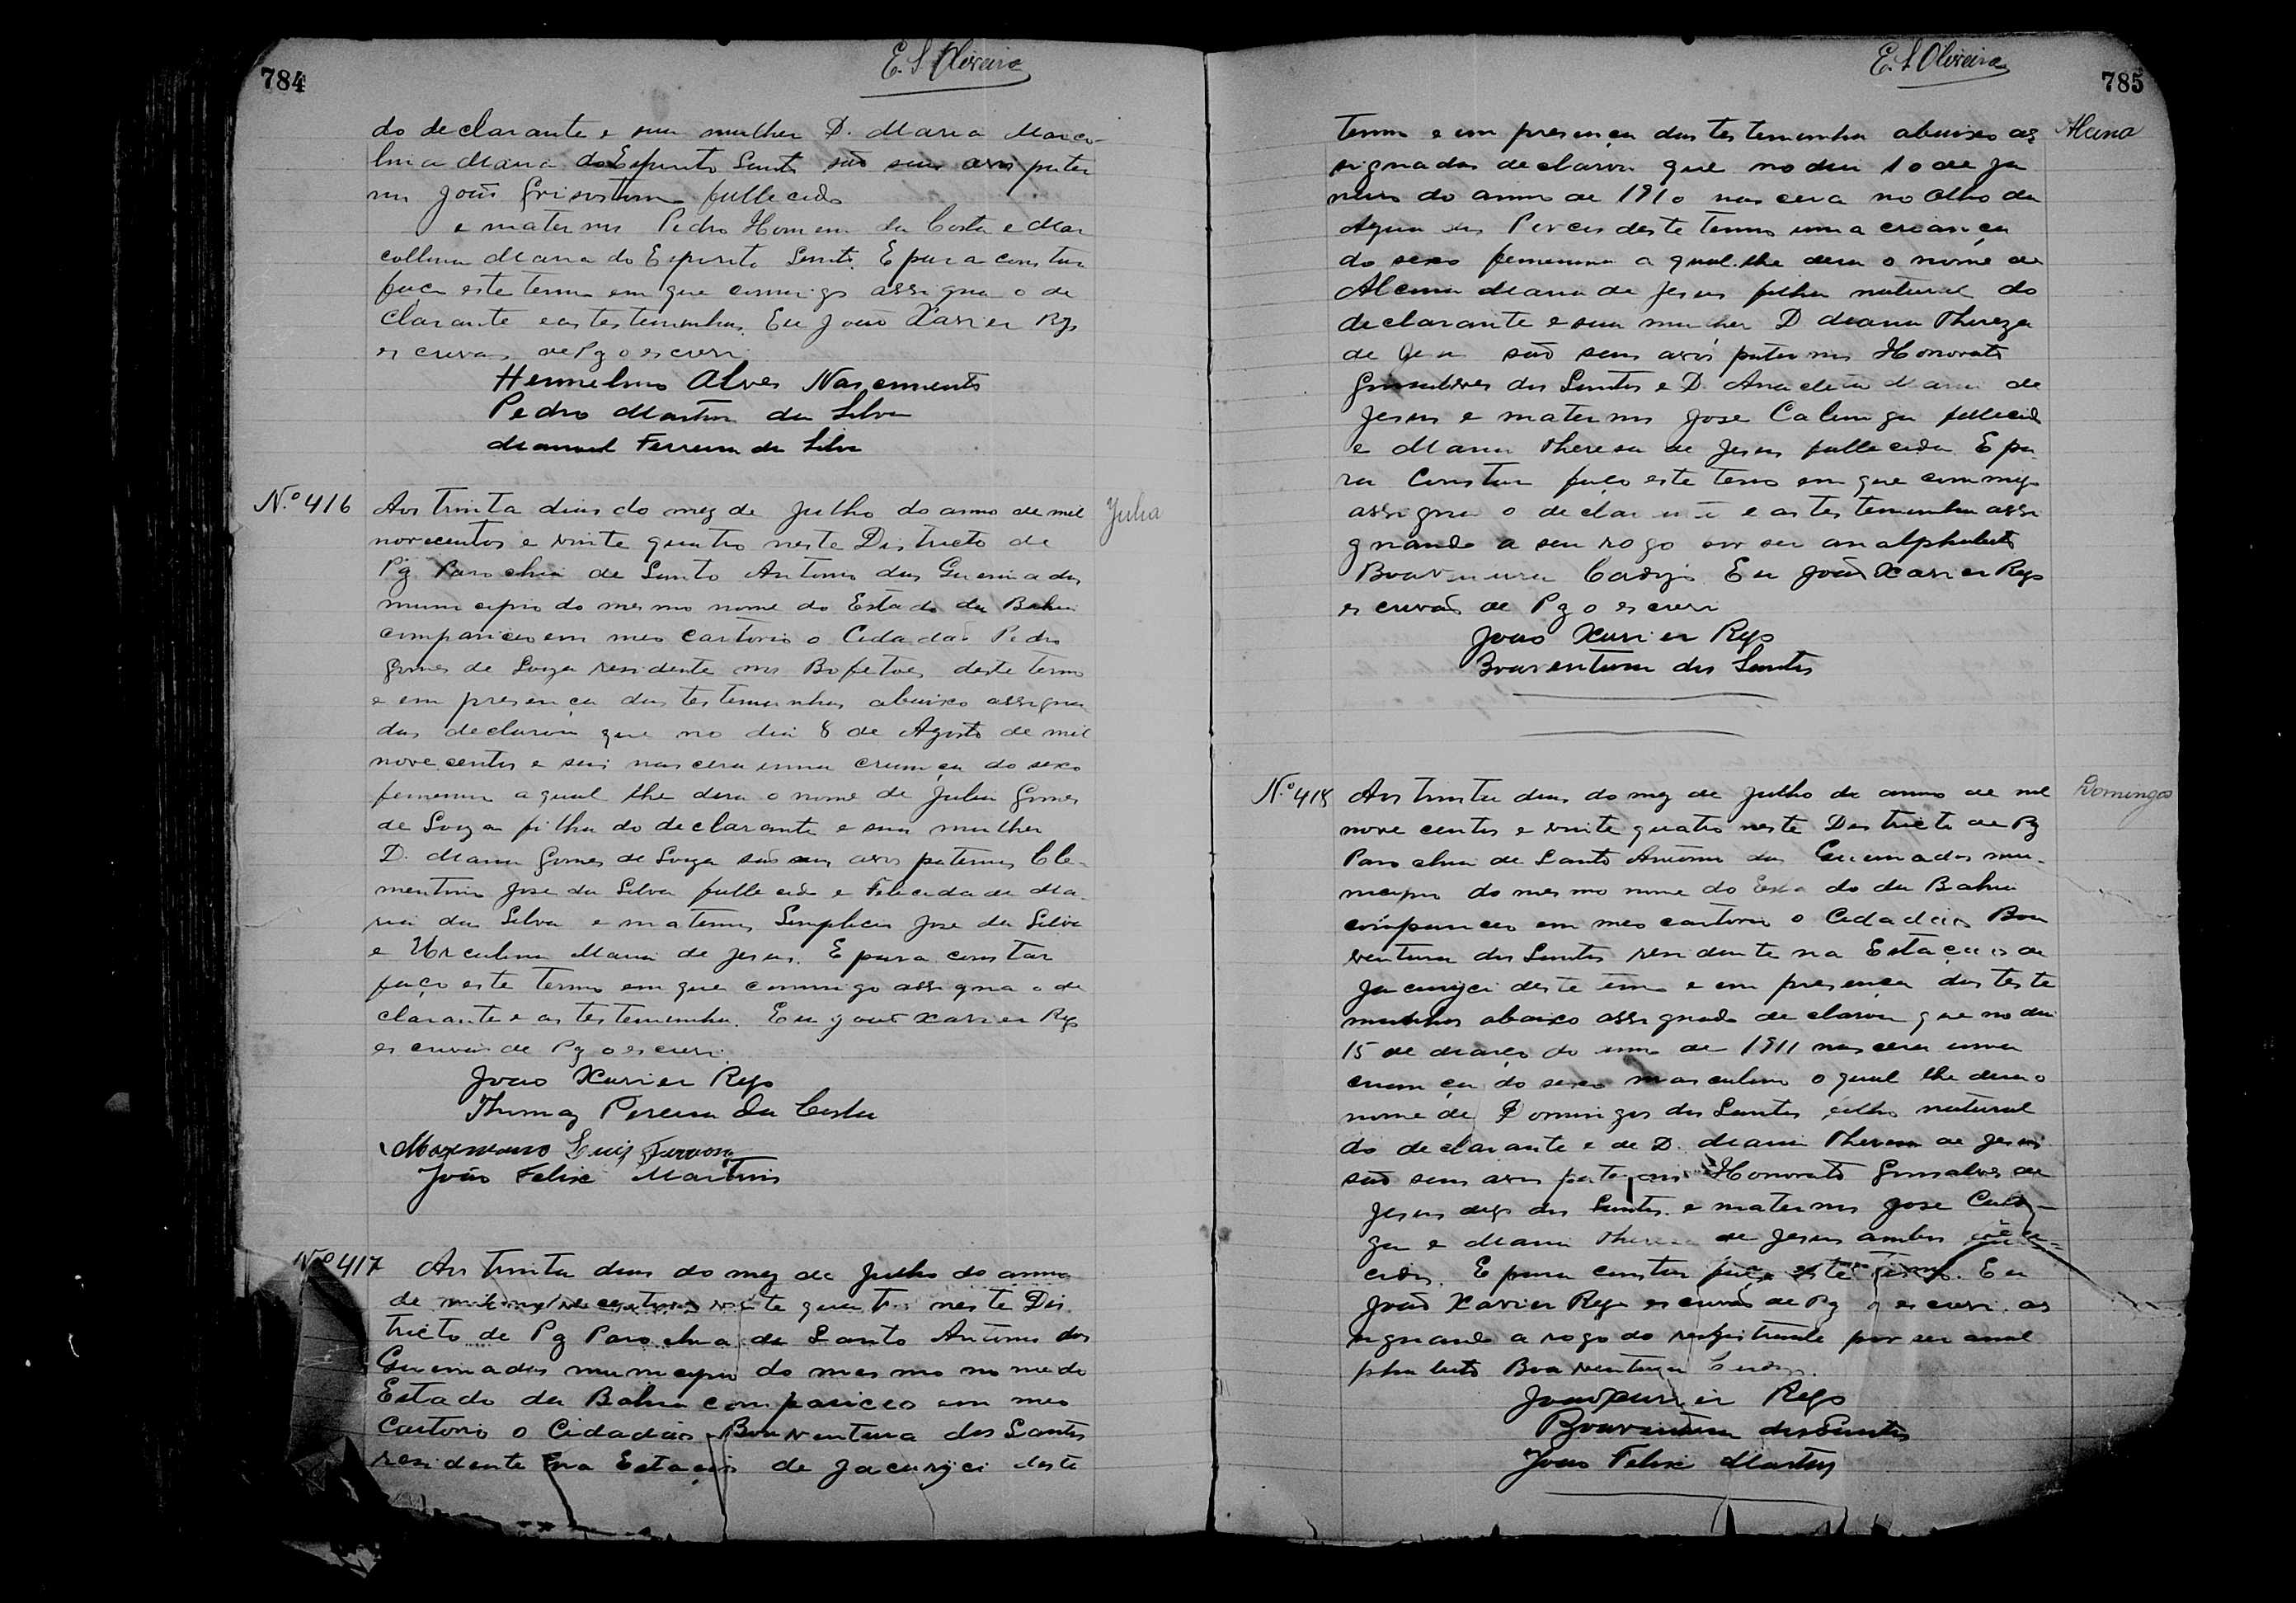 784
E. S. Oliveira
do declarante e sua mulher D. Maria Marco-
lina Maria do Espirito Santo são seus avós pater
nos João Grisostimo fallecido
e maternos Pedro Homem da Costa e Mar
collina Maria do Espirito Santo. E para constar
faço este termo em que commigo assigna o de
clarante e as testemunhas. Eu João Xavier Rego
escrivão de Pz o escrevi
Hermelino Alves Nascimento
Pedro Martins da Silva
Manoel Ferreira da Silva
N.º 416
Julia
Aos trinta dias do mez de Julho do anno de mil
novecentos e vinte quatro neste Districto de
Pz Parochia de Santo Antonio das Queimadas
municipio do mesmo nome do Estado da Bahia
compariceo em meo cartorio o Cidadão Pedro
Gomes de Souza residente nos Bofetoes deste termo
e em presença das testemunhas abaixo assigna
das declarou que no dia 8 de Agosto de mil
nove centos e seis nascera uma criança do sexo
femenino a qual lhe dera o nome de Julia Gomes
de Souza filha do declarante e sua mulher
D. Maria Gomes de Souza são seus avós paternos Cle-
mentino Jose da Silva fallecido e Felicidade Ma-
ria da Silva e maternos Simplicio Jose da Silva
e Urculina Maria de Jesus. E para constar
faço este termo em que commigo assigna o de
clarante e as testemunhas. Eu João Xavier Rego
escrivão de Pz o escrevi.
João Xavier Rego
Thomaz Pereira da Costa
Luiz
João Felix Martins
N.º 417
Aos trinta dias do mez de Julho do anno
de mil novecentos e vinte quatro neste Dis
tricto de Pz Parochia de Santo Antonio das
Queimadas municipio do mesmo nome do
Estado da Bahia compariceo em meo
Cartorio o Cidadão Boaventura dos Santos
residente na Estação de Jacuryci deste
E. S. Oliveira
785
Alcina
termo e em presença das testemunhas abaixo as
signadas declarou que no dia 10 de Ja
neiro do anno de 1910 nascera no Olho da
Agua dos Porcos deste termo uma criança
do sexo femenino a qual lhe dera o nome de
Alcina Maria de Jesus filha natural do
declarante e sua mulher D Maria Thereza
de Jesus são seus avós paternos Honorato
Gonsalves dos Santos e D. Anacleta Maria de
Jesus e maternos Jose Calunga fallecido
e Maria Theresa de Jesus fallecida E pa
ra Constar faço este termo em que commigo
assigna o declarante e as testemunhas assi
gnando a seu rogo por ser analphabeto
Boaventura Cardozo Eu João Xavier Rego
escrivão de Pz o escrevi
João Xavier Rego
Boaventura dos Santos
N.º 418
Domingos
Aos trinta dias do mez de Julho do anno de mil
nove centos e vinte quatro neste Districto de Pz
Parochia de Santo Antonio das Queimadas mu-
nicipio do mesmo nome do Estado da Bahia
compariceo em meo cartorio o Cidadão Boa
ventura dos Santos residente na Estação de
Jacuryci deste termo e em presença das teste
munhas abaixo assignado declarou que no dia
15 de Março do anno de 1911 nascera uma
criança do sexo masculino o qual lhe dera o
nome de Domingos dos Santos filho natural
do declarante e de D. Maria Thereza de Jesus
são seus avos paternos Honorato Gonsalves de
Jesus digo dos Santos e maternos Jose Calun-
ga e Maria Thereza de Jesus ambos falle-
cidos. E para constar faço este termo. Eu
João Xavier Rego escrivão de Pz o escrevi as
signando a rogo do registrante por ser anal
phabeto Boaventura Cardozo.
João Xavier Rego
Boaventura dos Santos
João Felix Martins